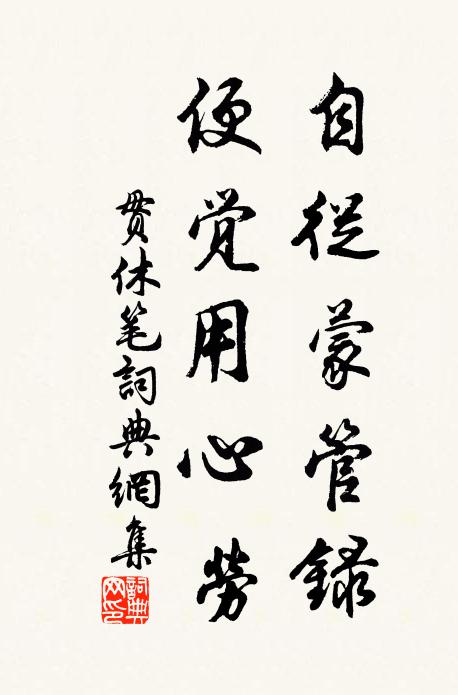 自從蒙管録
便覺用心勞
貫休笔詞典網集
詞典網印